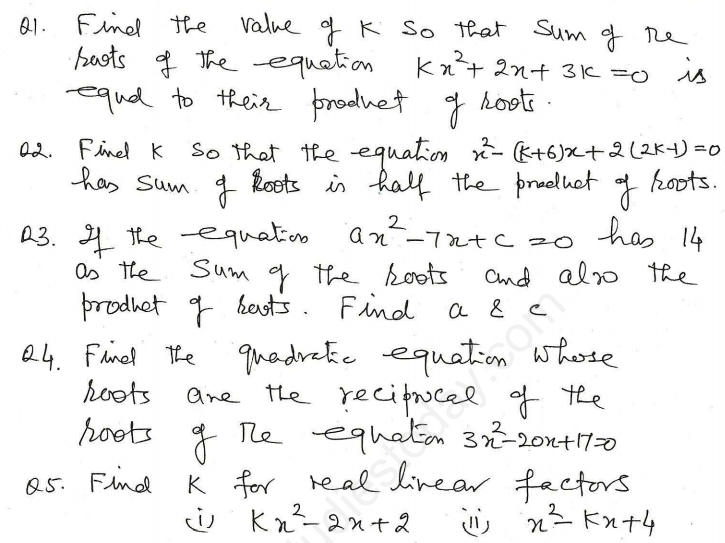 Q1. Find the value of K so that sum of the
roots of the equation Kx²+2x+3K=0 is
equal to their product of roots.
Q2. Find K so that the equation x²-(K+6)x+2(2K-1)=0
has sum of roots is half the product of roots.
Q3. If the equation ax²-7x+c=0 has 14
as the sum of the roots and also the
product of roots. Find a & c
Q4. Find the quadratic equation whose
roots are the reciprocal of the
roots of the equation 3x²-20x+17=0
Q5. Find K for real linear factors
(i) Kx²-2x+2 (ii) x²-Kx+4